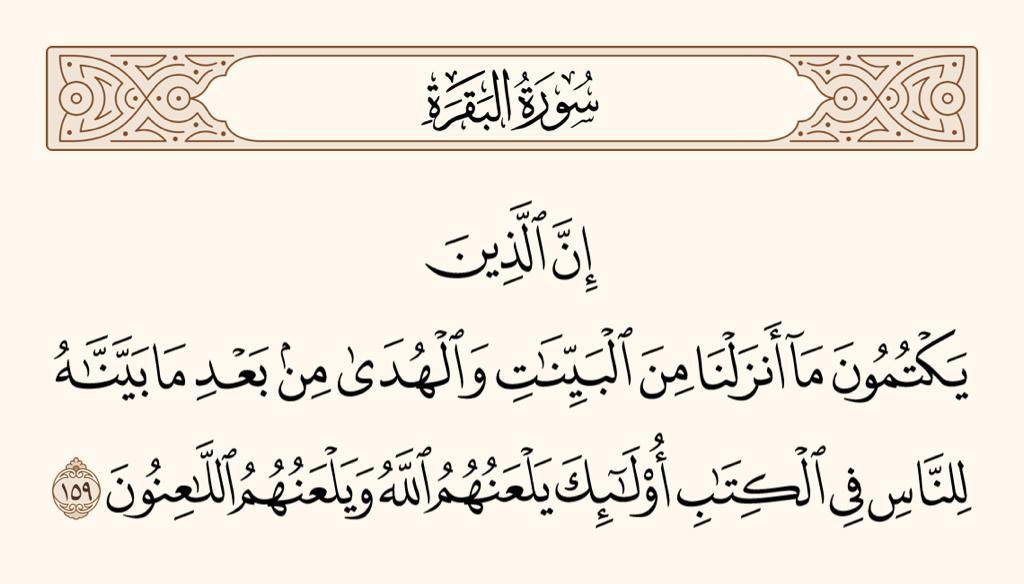 سُورَةُ البَقَرَةِ
إِنَّ ٱلَّذِينَ
يَكْتُمُونَ مَآ أَنزَلْنَا مِنَ ٱلْبَيِّنَـٰتِ وَٱلْهُدَىٰ مِنۢ بَعْدِ مَا بَيَّنَّـٰهُ
لِلنَّاسِ فِى ٱلْكِتَـٰبِ أُو۟لَـٰٓئِكَ يَلْعَنُهُمُ ٱللَّهُ وَيَلْعَنُهُمُ ٱللَّـٰعِنُونَ ١٥٩